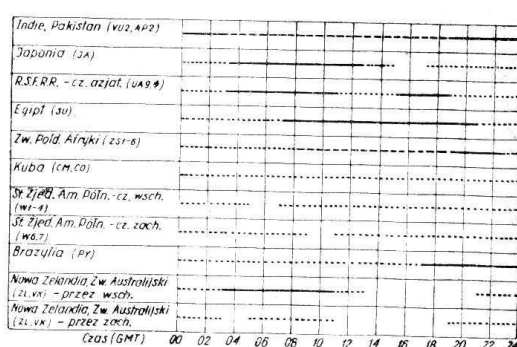 Indie, Pakistan (VU2, AP2)
Japonia (JA)
R.S.F.R.R. - cz. azjat. (UA9,Φ)
Egipt (SU)
Zw. Połd. Afryki (ZS1-6)
Kuba (CM,CO)
St. Zjed. Am. Półn. - cz. wsch.
(W1-4)
St. Zjed. Am. Półn. - cz. zach.
(W6,7)
Brazylia (PY)
Nowa Zelandia, Zw. Australijski
(ZL,VK) - przez wsch.
Nowa Zelandia, Zw. Australijski
(ZL,VK) - przez zach.
Czas (GMT) 00 02 04 06 08 10 12 14 16 18 20 22 24